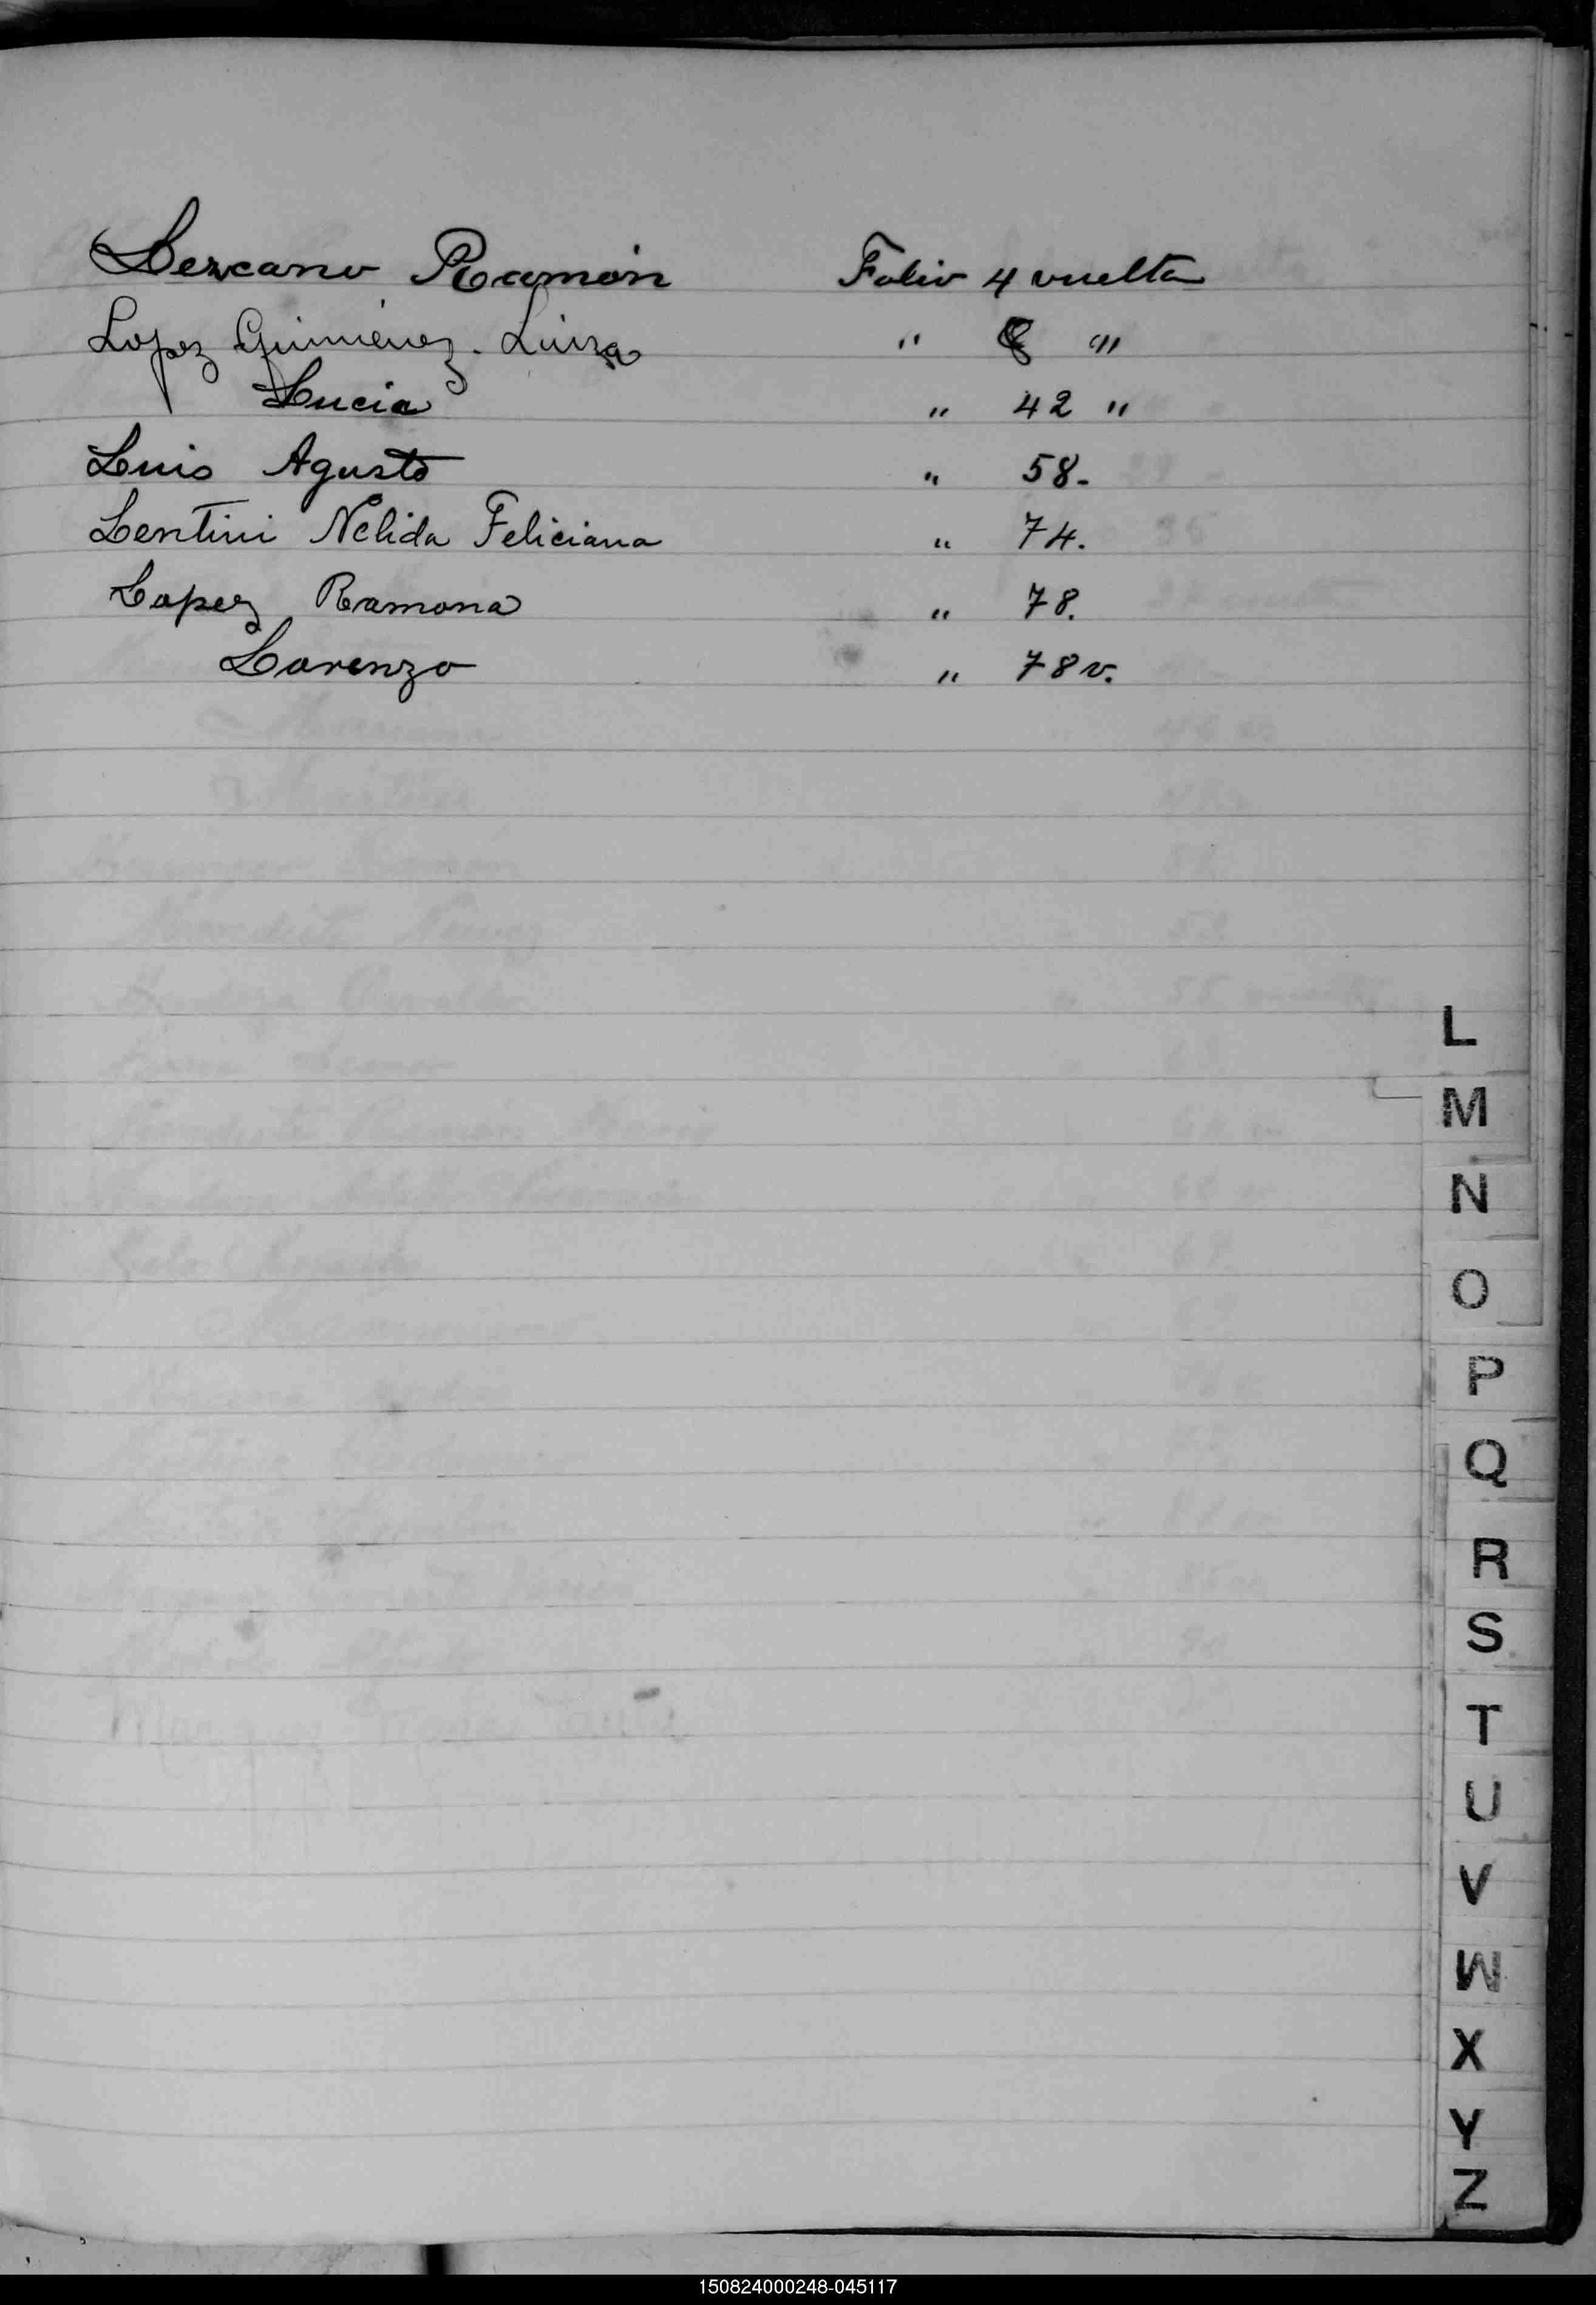 Lezcano Ramón Folio 4 vuelta
Lopez Gimenez. Luiza " 8 "
Lucia " 42 "
Luis Agusto " 58-
Lentini Nelida Feliciana " 74.
Lopez Ramona " 78.
Lorenzo " 78 v.
L
M
N
O
P
Q
R
S
T
U
V
W
X
Y
Z
150824000248-045117